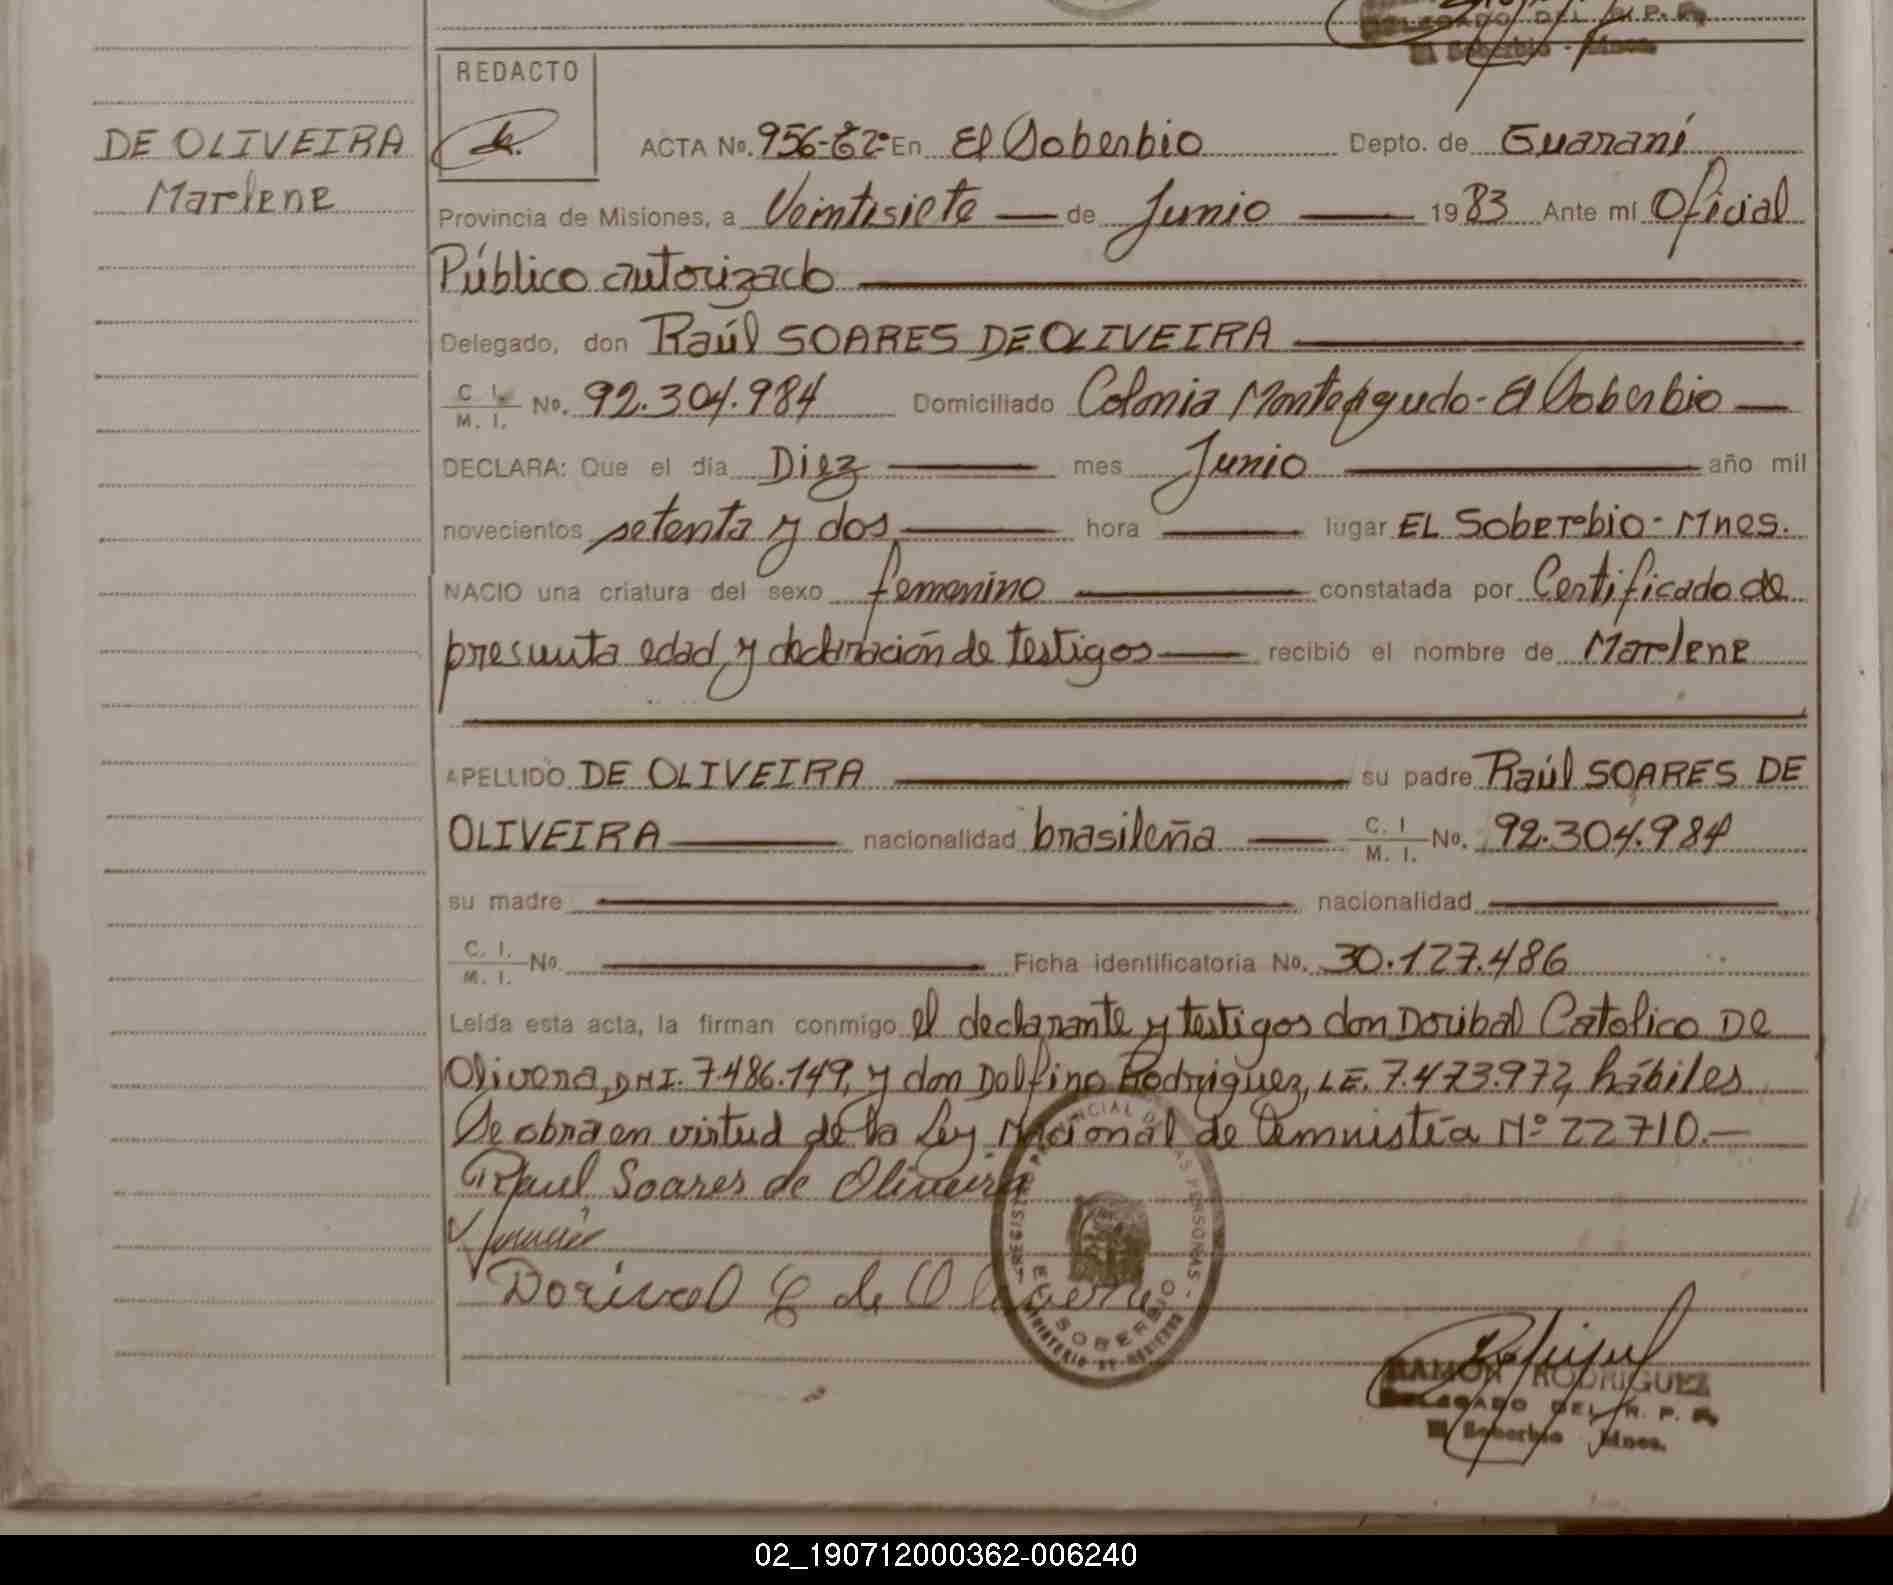 DELEGADO DEL R. P. P.
El Soberbio - Mnes.
REDACTO
DE OLIVEIRA
Marlene
ACTA No. 956-E2º En El Soberbio Depto. de Guaraní
Provincia de Misiones, a Veintisiete de Junio 1983 Ante mi Oficial
Público autorizado
Delegado, don Raúl SOARES DE OLIVEIRA
C. I. M. I. No. 92.304.984 Domiciliado Colonia Monteagudo - El Soberbio
DECLARA: Que el dia Diez mes Junio año mil
novecientos setenta y dos hora lugar EL Soberbio - Mnes.
NACIO una criatura del sexo femenino constatada por Certificado de
presunta edad y declaración de testigos recibió el nombre de Marlene
APELLIDO DE OLIVEIRA su padre Raúl SOARES DE
OLIVEIRA nacionalidad brasileña C. I M. I. No. 92.304.984
su madre nacionalidad
C. I. M. I. No. Ficha identificatoria No. 30.127.486
Leida esta acta, la firman conmigo el declarante y testigos don Doribal Catolico De
Olivera, DNI. 7.486.149, y don Dolfino Rodriguez, L.E. 7.473.972, hábiles
Se obra en virtud de la Ley Nacional de Amnistía Nº 22710.-
Raul Soares de Oliveira
Dorival C de Olivera
REGISTRO PROVINCIAL DE LAS PERSONAS
EL SOBERBIO
RAMON RODRIGUEZ
DELEGADO DEL R. P. P.
El Soberbio Mnes.
02_190712000362-006240